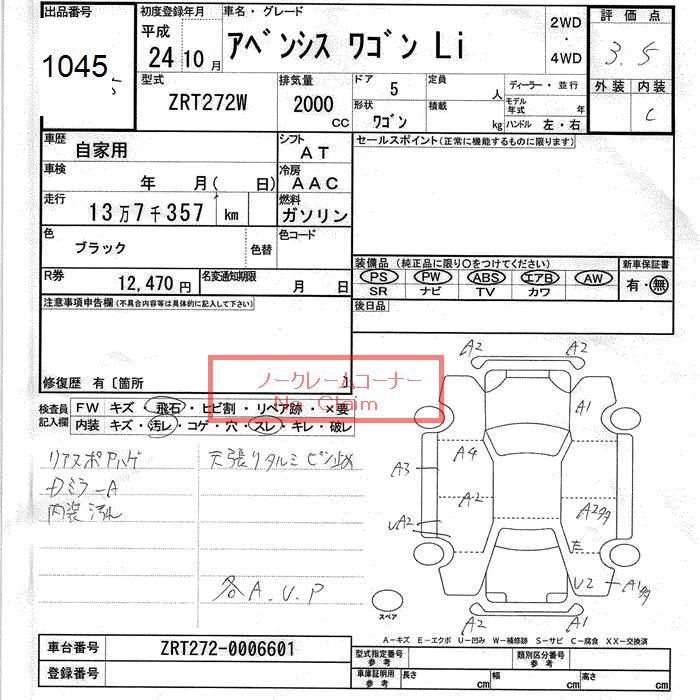 出品番号
1045
5
初度登録年月
平成
24 10 月
車名・グレード
アベンシス ワゴン Li
2WD
・
4WD
評価点
3.5
外装 内装
C
型式
ZRT272W
排気量
2000
CC
ドア 5
形状
ワゴン
定員
人
積載
kg
ディーラー・並行
モデル年式 年
ハンドル 左・右
車歴
自家用
シフト
AT
セールスポイント(正常に機能するものに限ります)
車検
年 月( 日)
冷房
AAC
走行
13万7千357 km
燃料
ガソリン
色
ブラック
色替
色コード
装備品(純正品に限り○をつけてください)
PS PW ABS エアB AW
SR ナビ TV カワ
新車保証書
有・無
R券
12,470 円
名変通知期限
月 日
後日品
注意事項申告欄(不具合内容等は具体的に記入して下さい)
修復歴 有〔箇所
ノークレームコーナー
No Claim
検査員記入欄
FW キズ・飛石・ヒビ割・リペア跡・×要
内装 キズ・汚レ・コゲ・穴・スレ・キレ・破レ
リアスポアハゲ
Dミラ-A
内装汚れ
天張りタルミ ピン止め
各A.U.P
A2 A2
A1
A4
A3
A2
A2多
UA2
U2
A1多
A2
A1
スペア
A-キズ E-エクボ U-凹み W-補修跡 S-サビ C-腐食 XX-交換済
車台番号 ZRT272-0006601
登録番号
型式指定番号
参考
類別区分番号
参考
車庫証明用
参考
長さ cm
幅 cm
高さ cm